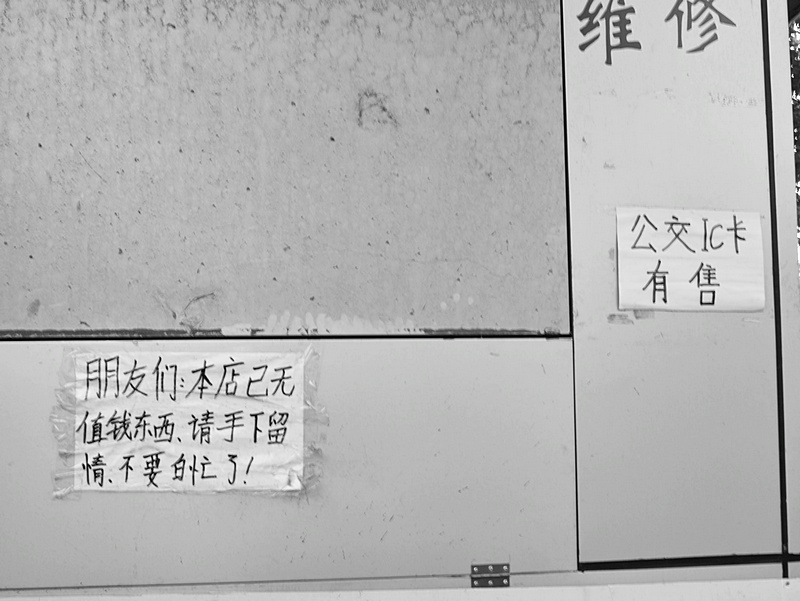 维修
公交IC卡
有售
朋友们:本店已无
值钱东西、请手下留
情、不要白忙了!